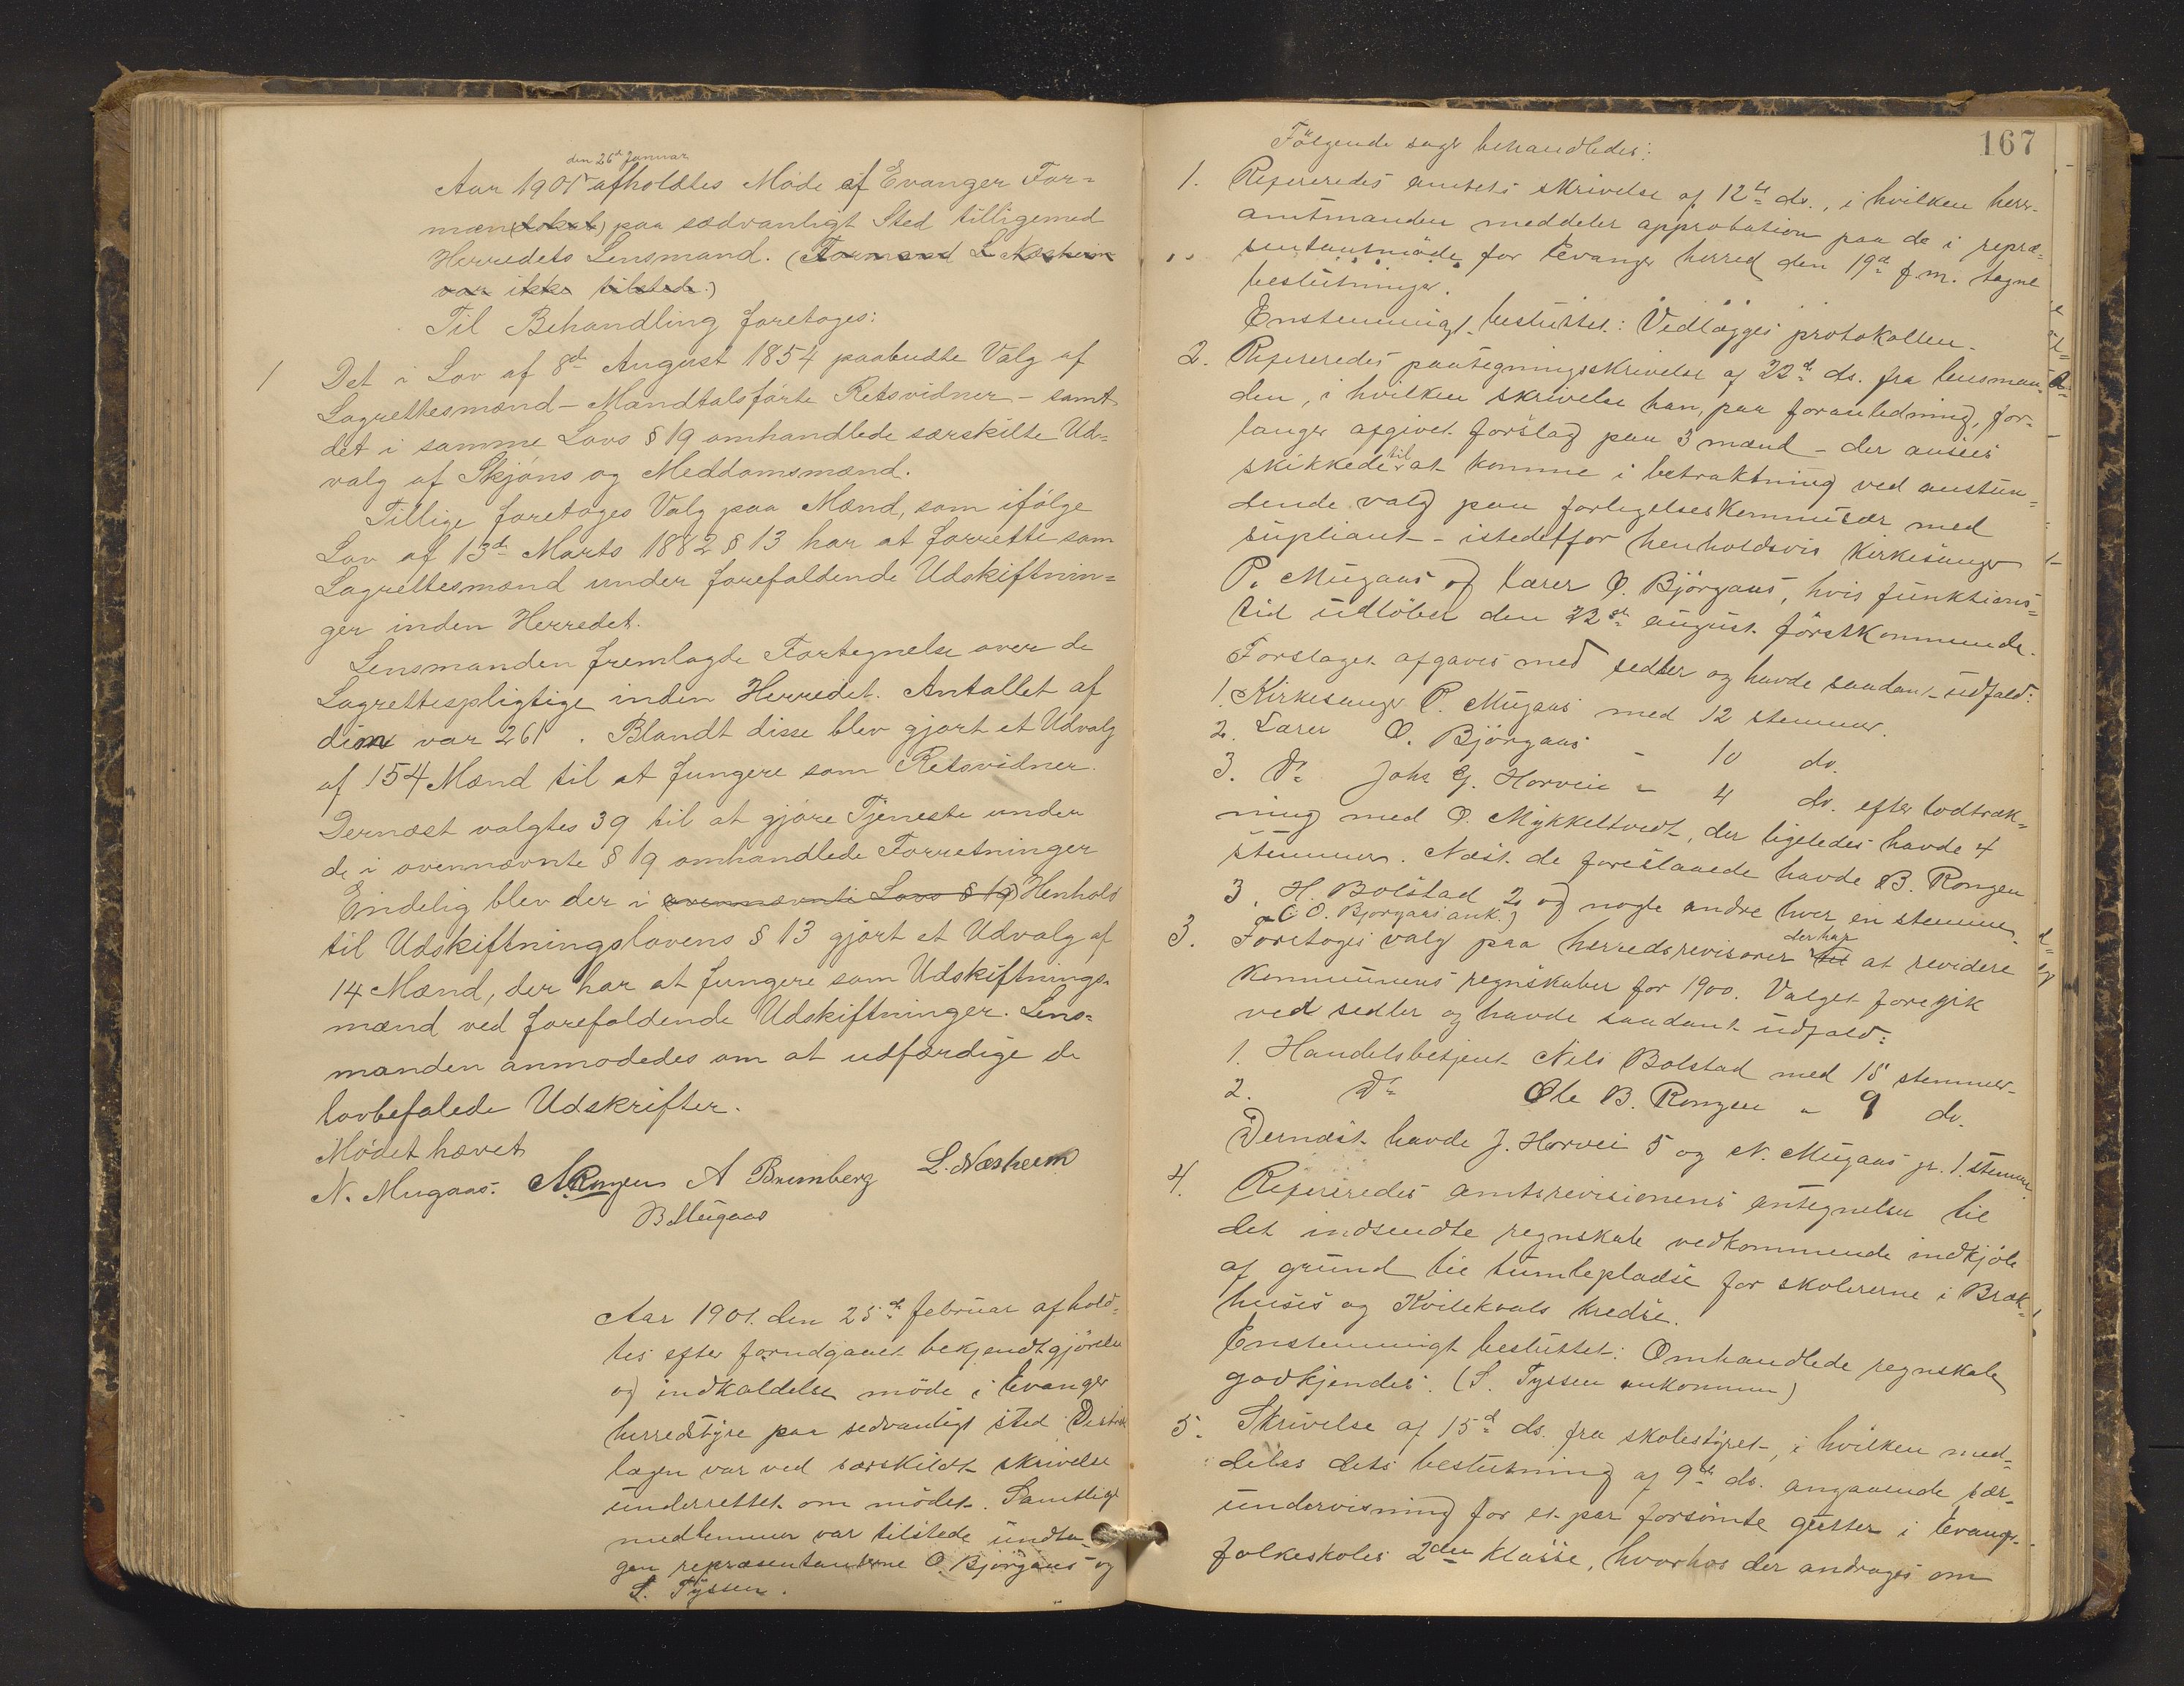 den 26d Januar
Aar 1901 afholdtes Møde af Evanger For=
mandskab) paa sædvanligt Sted tilligemed
Herredets Lensmand. (Formand L Næsheim
var ikke tilstede.)
Til Behandling foretoges:
1 Det i Lov af 8de August 1854 paabudte Valg af
Lagrettesmænd - Mandtalsførte Retsvidner - samt
det i samme Lovs § 19 omhandlede særskilte Ud=
valg af Skjøns og Meddomsmænd.
Tillige foretoges Valg paa Mænd, som ifølge
Lov af 13de Marts 1882 § 13 har at forrette som
Lagrettesmænd under forefaldende Udskiftnin=
ger inden Herredet.
Lensmanden fremlagde Fortegnelse over de
Lagrettespligtige inden Herredet. Antallet af
dem var 261. Blandt disse blev gjort et Udvalg
af 154 Mænd til at fungere som Retsvidner.
Dernæst valgtes 39 til at gjøre Tjeneste under
de i ovennævnte § 19 omhandlede Forretninger
Endelig blev der i ovennævnte Lovs § 19) Henhold
til Udskiftningslovens § 13 gjort et Udvalg af
14 Mænd, der har at fungere som Udskiftnings-
mænd ved forefaldende Udskiftninger. Lens=
manden anmodedes om at udfærdige de
lovbefalede Udskrifter.
Mødet hævet
N. Mugaas. ARongen A Brunberg L. Næsheim
B Mugaas
Aar 1901. den 25de februar afhold=
tes efter forudgaaet bekjendtgjörelse
og indkaldelse möde i Evanger
herredstyre paa sedvanligt sted. Distrikts
lægen var ved særskildt skrivelse
underrettet om mödet. Samtlige
medlemmer var tilstede undta-
gen repræsentanterne O. Björgaas og
L. Tyssen.
167
Fölgende sager behandledes:
1. Refereredes amtets skrivelse af 12te ds., i hvilken herr.
amtmanden meddeler approbation paa de i repræ=
sentantmöde for Evanger herred den 19de f.m. tagne
beslutninger.
Enstemmigt besluttet: Vedlægges protokollen.
2. Refereredes paategningsskrivelse af 22de ds. fra lensman-
den, i hvilken skrivelse han, paa foranledning, for=
langer afgivet forslag paa 3 mænd - der ansees
skikkede til at komme i betraktning ved anstun=
dende valg paa forligelseskommisær med
supliant - istedetfor henholdsvis Kirkesanger
P. Mugaas og lærer O. Björgaas, hvis funktions=
tid udlöber den 22de august förstkommende.
Forslaget afgaves med sedler og havde saadant udfald:
1. Kirkesanger P. Mugaas med 12 stemmer.
2. Lærer O. Björgaas - 10 do.
3. Do Johs G. Horvei - 4 do. efter lodtræk=
ning med O. Mykkeltvedt, der ligeledes havde 4
stemmer. Næst de foreslaaede havde B. Rongen
3, H. Bolstad 2 og nogle andre hver en stemme.
(O. Bjørgaas ank.)
3. Foretoges valg paa herredsrevisorer der har til at revidere
kommunens regnskaber for 1900. Valget foregik
ved sedler og havde saadant udfald:
1. Handelsbetjent Nils Bolstad med 15 stemmer
2. Do Ole B. Rongen " 9 do.
Dernæst havde J. Horvei 5 og N. Mugaas jr. 1 stemme.
4. Refereredes amtsrevisionens antegnelser til
det indsendte regnskab vedkommende indkjöb
af grund til tumlepladse for skolererne i Bræk-
huses og Kvilekvals kredse.
Enstemmigt besluttet: Omhandlede regnskab
godkjendes. (L. Tyssen ankommen)
5. Skrivelse af 15de ds. fra skolestyret, i hvilken med=
deles dets beslutning af 9de ds. angaaende sær-
undervisning for et par forsömte gutter i Evanger
folkeskoles 2den klasse, hvorhos der andrages om